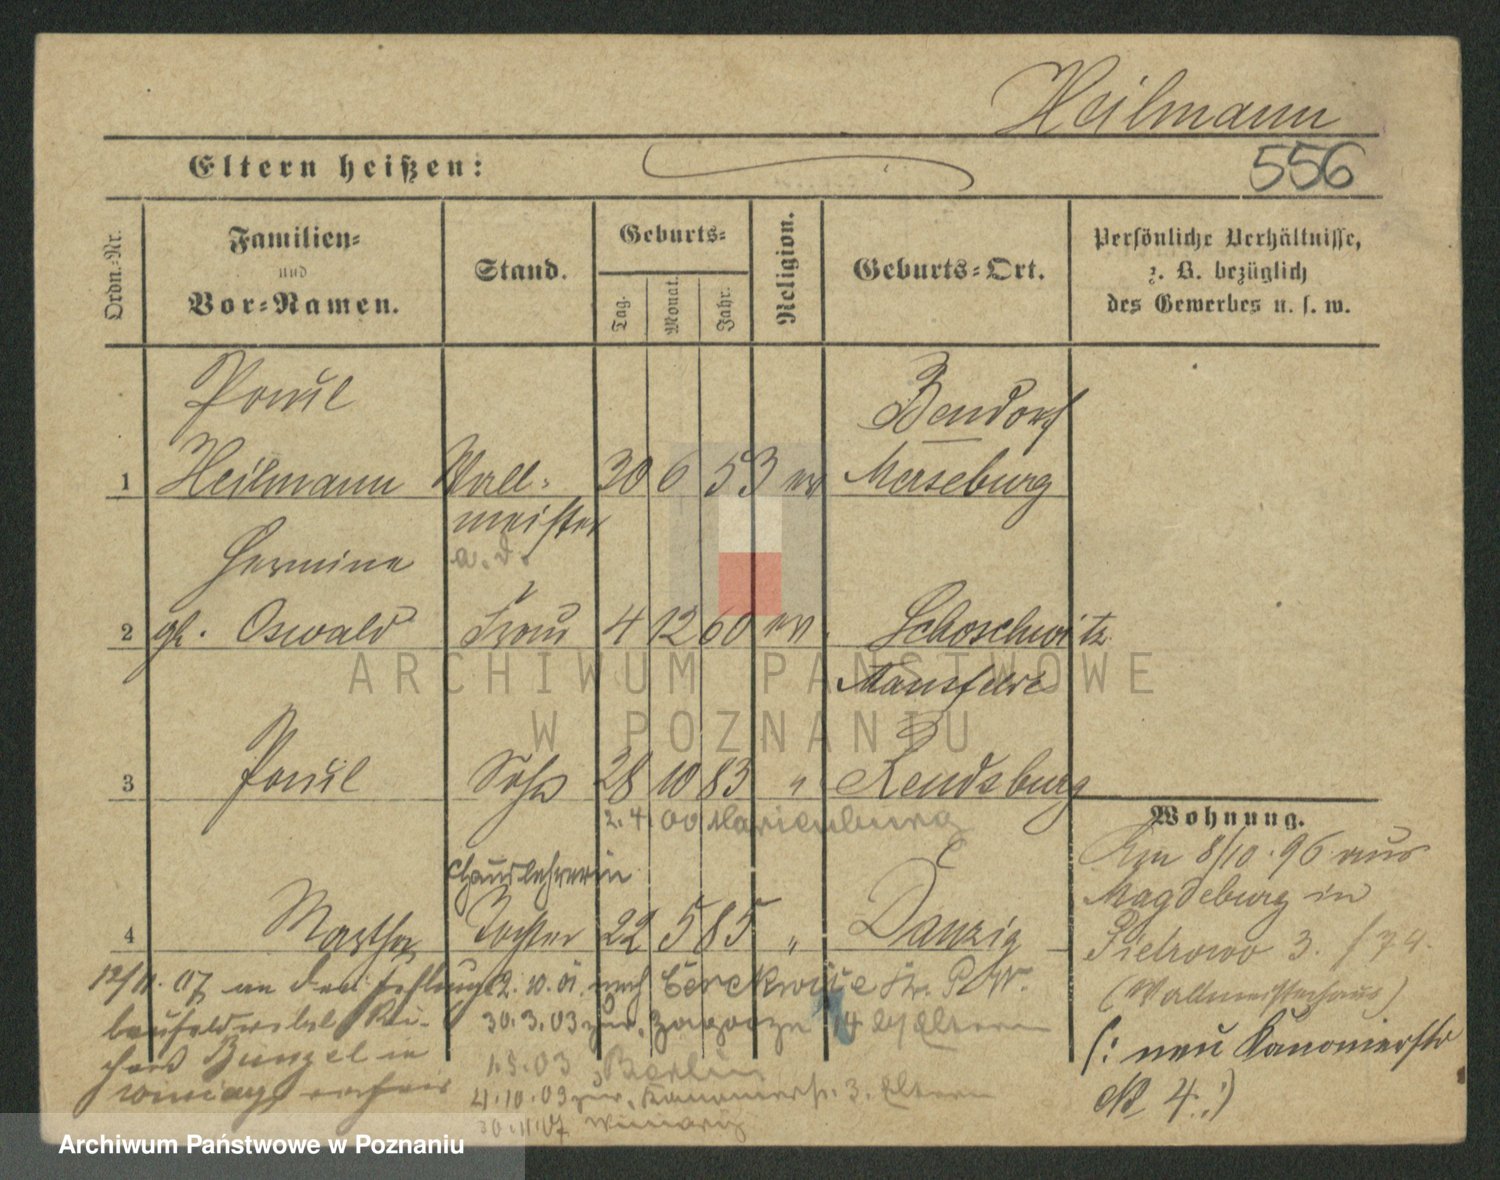 Heilmann
Eltern heißen:
556
Ordn.-Nr.
Familien-
und
Vor-Namen.
Stand.
Geburts-
Tag.
Monat.
Jahr.
Religion.
Geburts-Ort.
Persönliche Verhältnisse,
z. B. bezüglich
des Gewerbes u. s. w.
Paul
Bendorf
1 Heilmann Wall- 30 6 53 ev Merseburg
meister
a. D.
Hermine
2 gb. Oswald Frau 4 12 60 ev. Schoschwitz
Mansfeld
ARCHIWUM PAŃSTWOWE
W POZNANIU
3 Paul Sohn 28 10 83 " Rendsburg
2. 4. 00 Marienburg
Wohnung.
Am 8/10. 96 aus
Magdeburg in
Pietrowo 3. / 74.
(Wallmeisterhaus)
(: neu Kanonierstr
№ 4.:)
Hauslehrerin
4 Martha Tochter 22 5 85 " Danzig
12/11. 07 an den
2. 10. 01. nach Cerekwice Kr. P. W.
30. 3. 03 zur. Zagorze 14 Eltern
1. 5. 03 Berlin
Bunzel in
4. 10. 03 zur. Kanonierstr. 3. Eltern
Winiary
30. 11. 07 Winiary
Archiwum Państwowe w Poznaniu